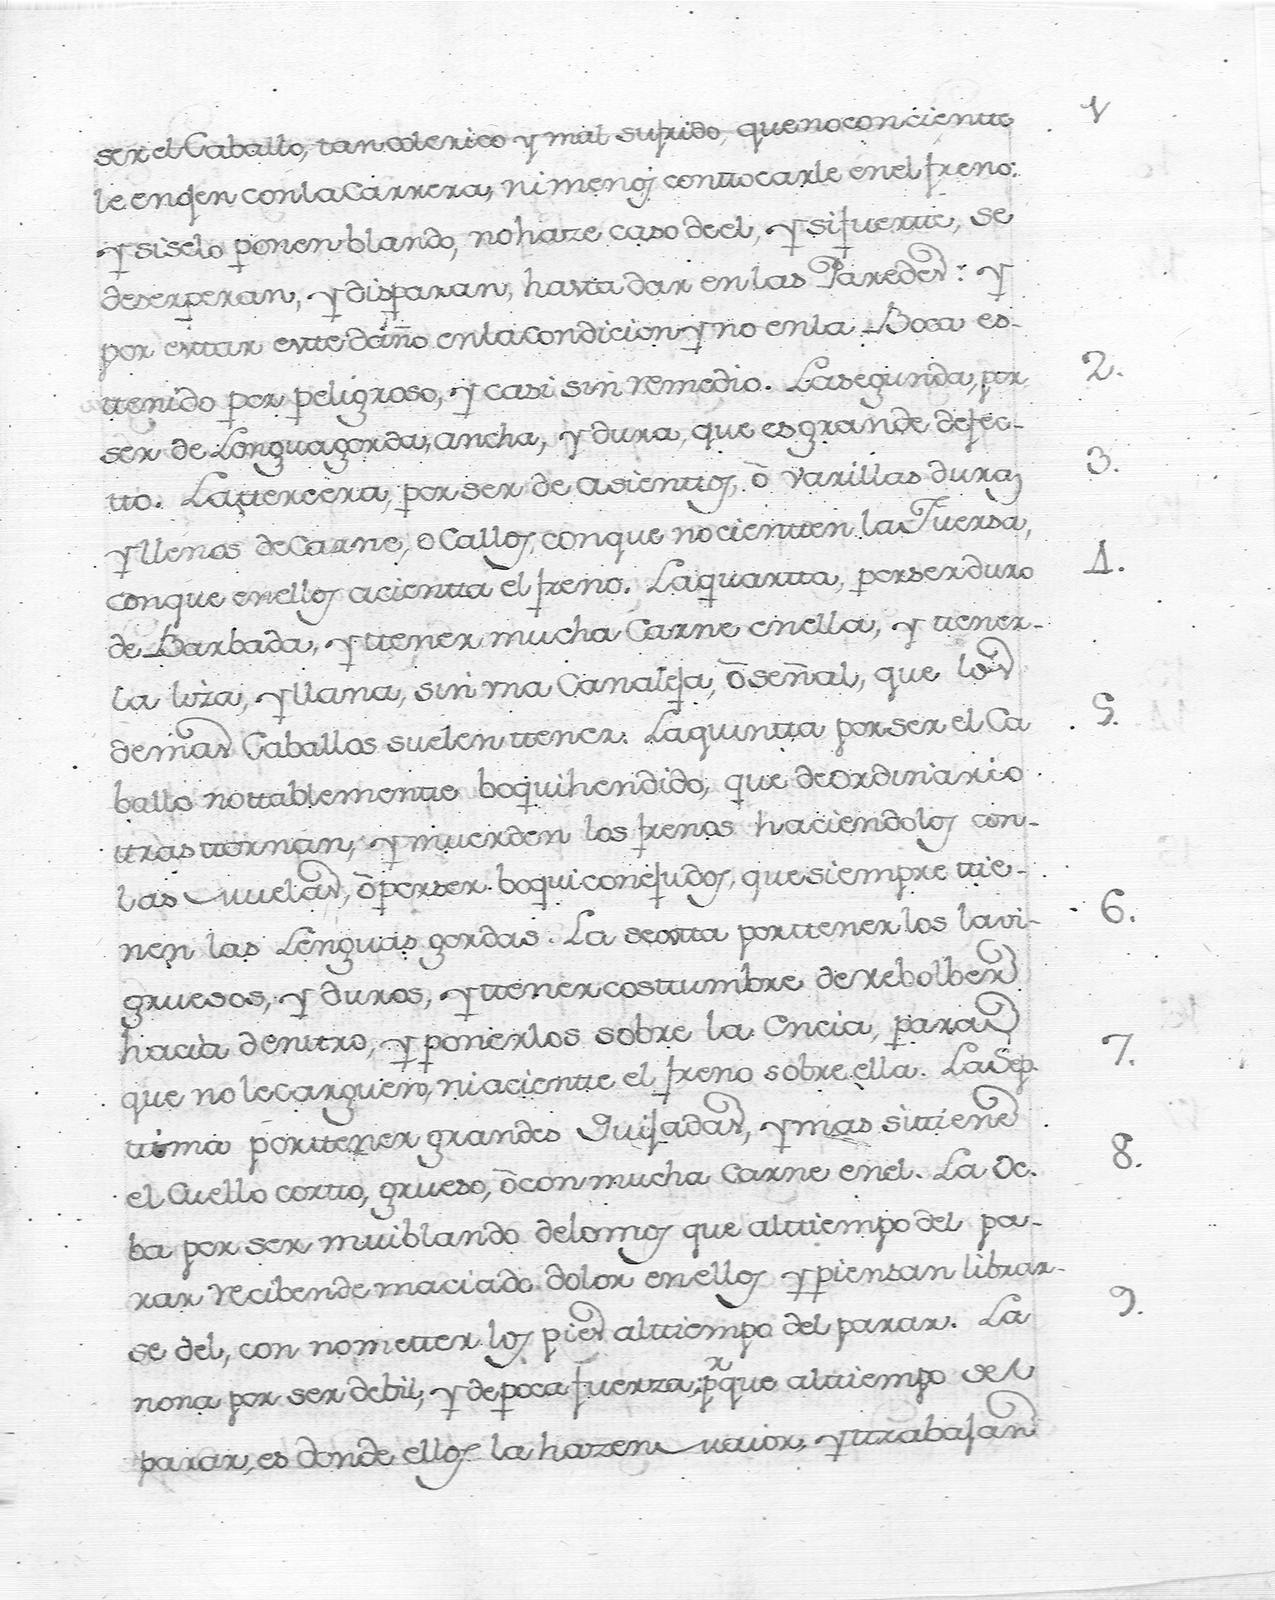 ser el Caballo, tan colerico y mal sufrido, que no conciente 1
le enojen con la Carrera, ni menos con ttocarle en el freno:
y si se lo ponen blando, no haze caso de el, y si fuertte, se
deserperan, y disparan, hasta dar en las Paredes: y
por esttar estte daño en la condicion y no en la Boca es-
ttenido por peligroso, y casi sin remedio. La segunda, por 2.
ser de Lengua gorda, ancha, y dura, que es grande defec-
tto. La ttercera, por ser de asienttos, ò varillas duras 3.
y llenos de Carne, o Callos, con que no cientten la Fuersa,
con que en ellos acientta el freno. La quartta, por ser duro 4.
de Barbada, y ttener mucha Carne en ella, y ttener-
la liza, y llana, sin ma Canaleja, ò señal, que los
demas Caballos suelen ttener. La quintta por ser el Ca 5.
ballo nottablementte boquihendido, que de ordinario
ttrasttornan, y muerden los frenos haciendolos con-
las muelas, ò por ser boquiconejudos, que siempre ttie-
nen las Lenguas gordas. La sextta por ttener los lavi- 6.
gruesos, y duros, y ttener costtumbre de rebolber
hacia denttro, y ponerlos sobre la Encia, para
que no le carguen, ni acientte el freno sobre ella. La Sep- 7.
ttima por ttener grandes Quijadas, y mas si ttiene
el Cuello cortto, grueso, ò con mucha Carne en el. La Oc- 8.
ba por ser mui blando de lomos que al ttiempo del pa-
rar reciben demaciado dolor en ellos y piensan librar-
se del, con no metter los pies al ttiempo del parar. La 9.
nona por ser debil, y de poca fuerza, pr que al ttiempo del
parar, es donde ellos la hazen maior, y ttrabajan